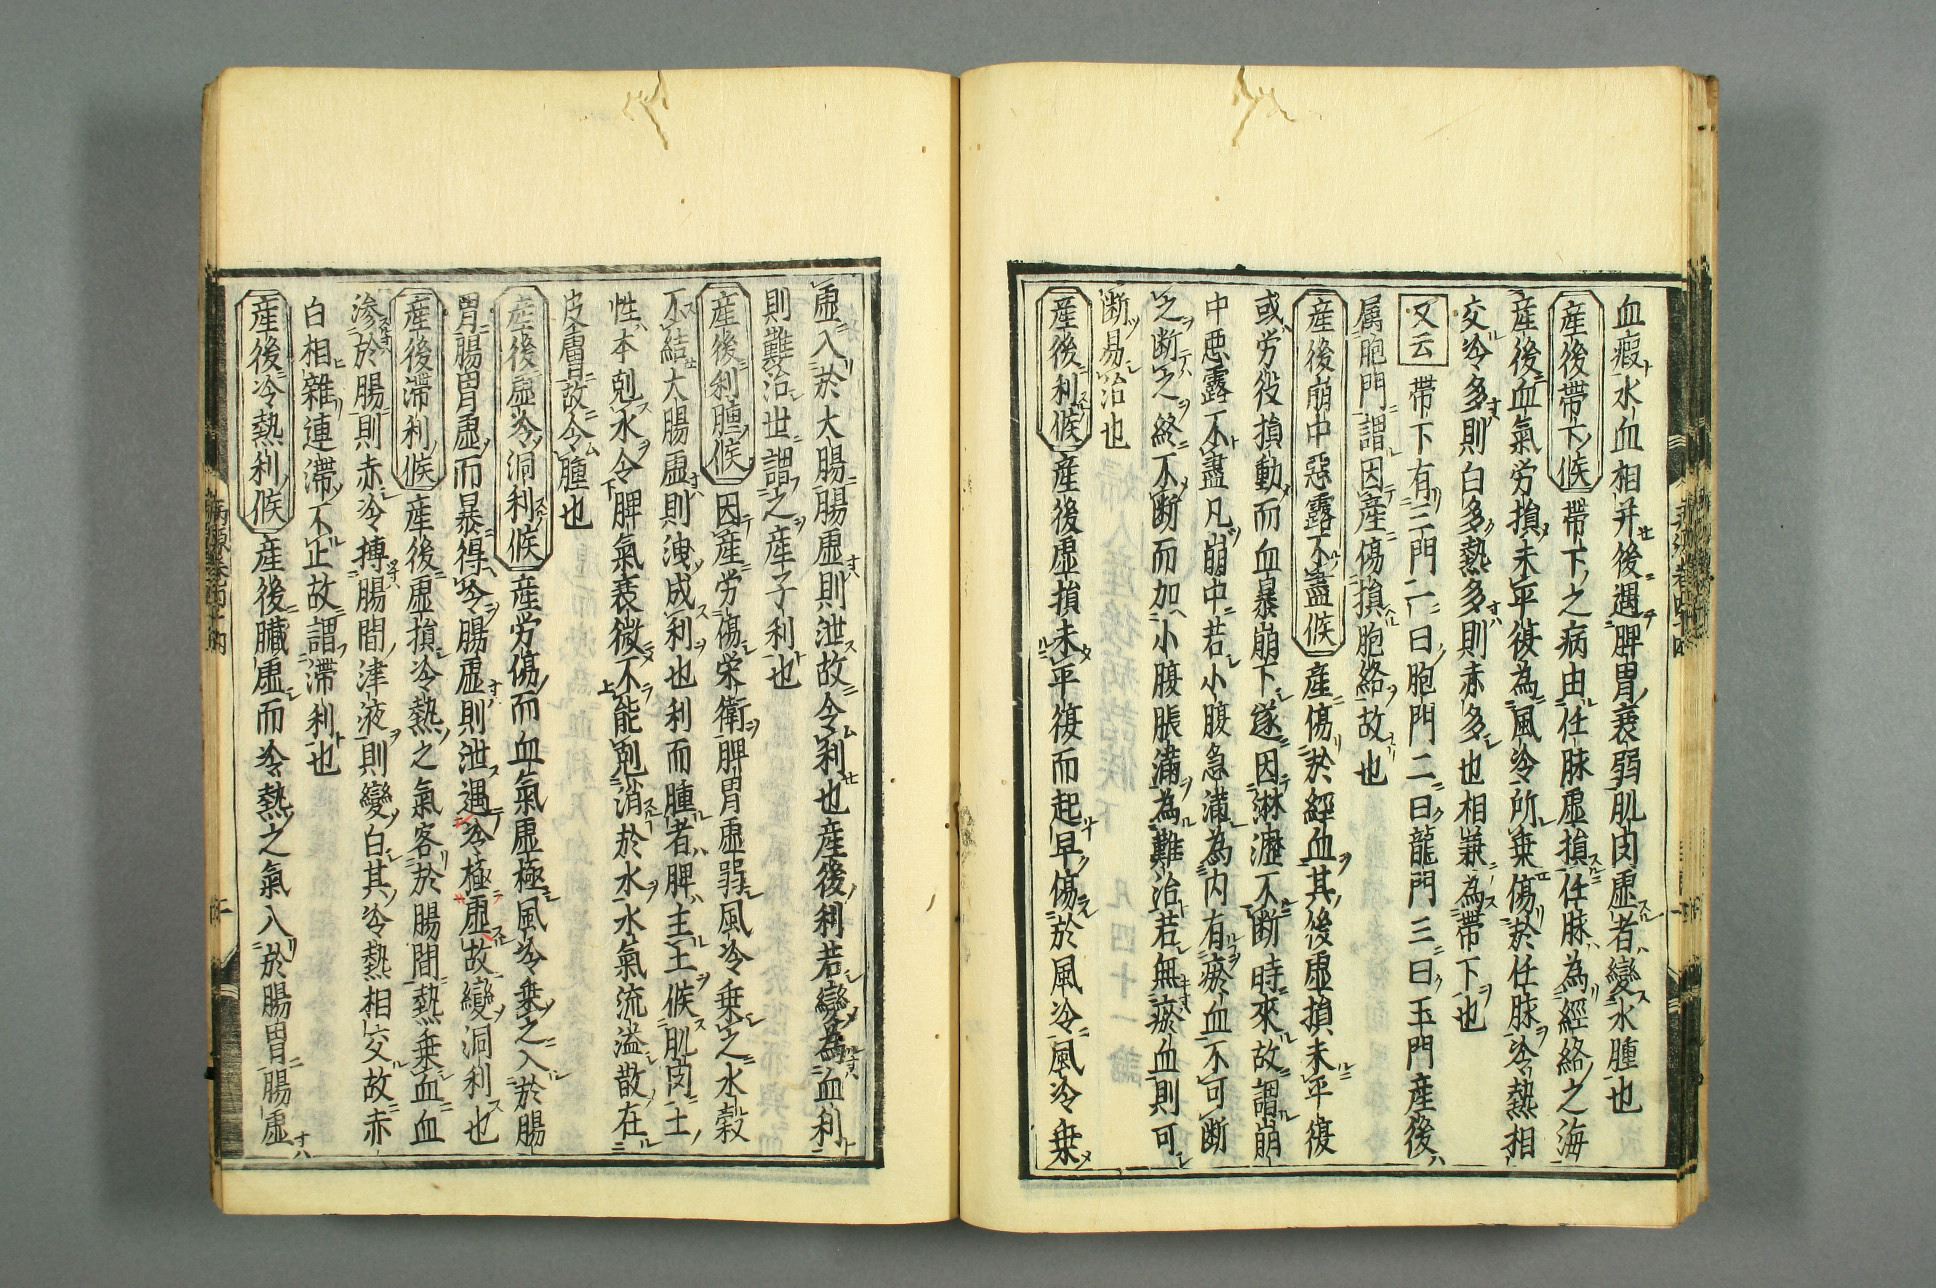 血瘕水血相并後遇脾胃衰弱肌肉虛者變水腫也
産後帶下候 帶下之病由任脉虛損任脉為經絡之海
産後血氣労損未平復為風冷所乗傷於任脉冷熱相
交冷多則白多熱多則赤多也相兼為帶下也
又云 帶下有三門一曰胞門二曰龍門三曰玉門産後
属胞門謂因産傷損胞絡故也
産後崩中惡露不盡候 産傷於經血其後虛損未平復
或労役損動而血暴崩下遂因淋瀝不断時來故謂崩
中惡露不盡凡崩中若小腹急満為内有瘀血不可断
之断之終不断而加小腹脹満為難治若無瘀血則可
断易治也
産後利候 産後虛損未平復而起早傷於風冷風冷乗
虛入於大腸腸虛則泄故令利也産後利若變為血利
則難治世謂之産子利也
産後利腫候 因産労傷栄衛脾胃虛弱風冷乗之水穀
不結大腸虛則洩成利也利而腫者脾主土候肌肉土
性本剋水令脾氣衰微不能剋消於水水氣流溢散在
皮膚故令腫也
産後虛冷洞利候 産労傷而血氣虛極風冷乗之入於腸
胃腸胃虛而暴得冷腸虛則泄遇冷極虛故變洞利也
産後滯利候 産後虛損冷熱之氣客於腸間熱乗血血
滲於腸則赤冷搏腸間津液則變白其冷熱相交故赤
白相雜連滯不止故謂滯利也
産後冷熱利候 産後臓虛而冷熱之氣入於腸胃腸虛